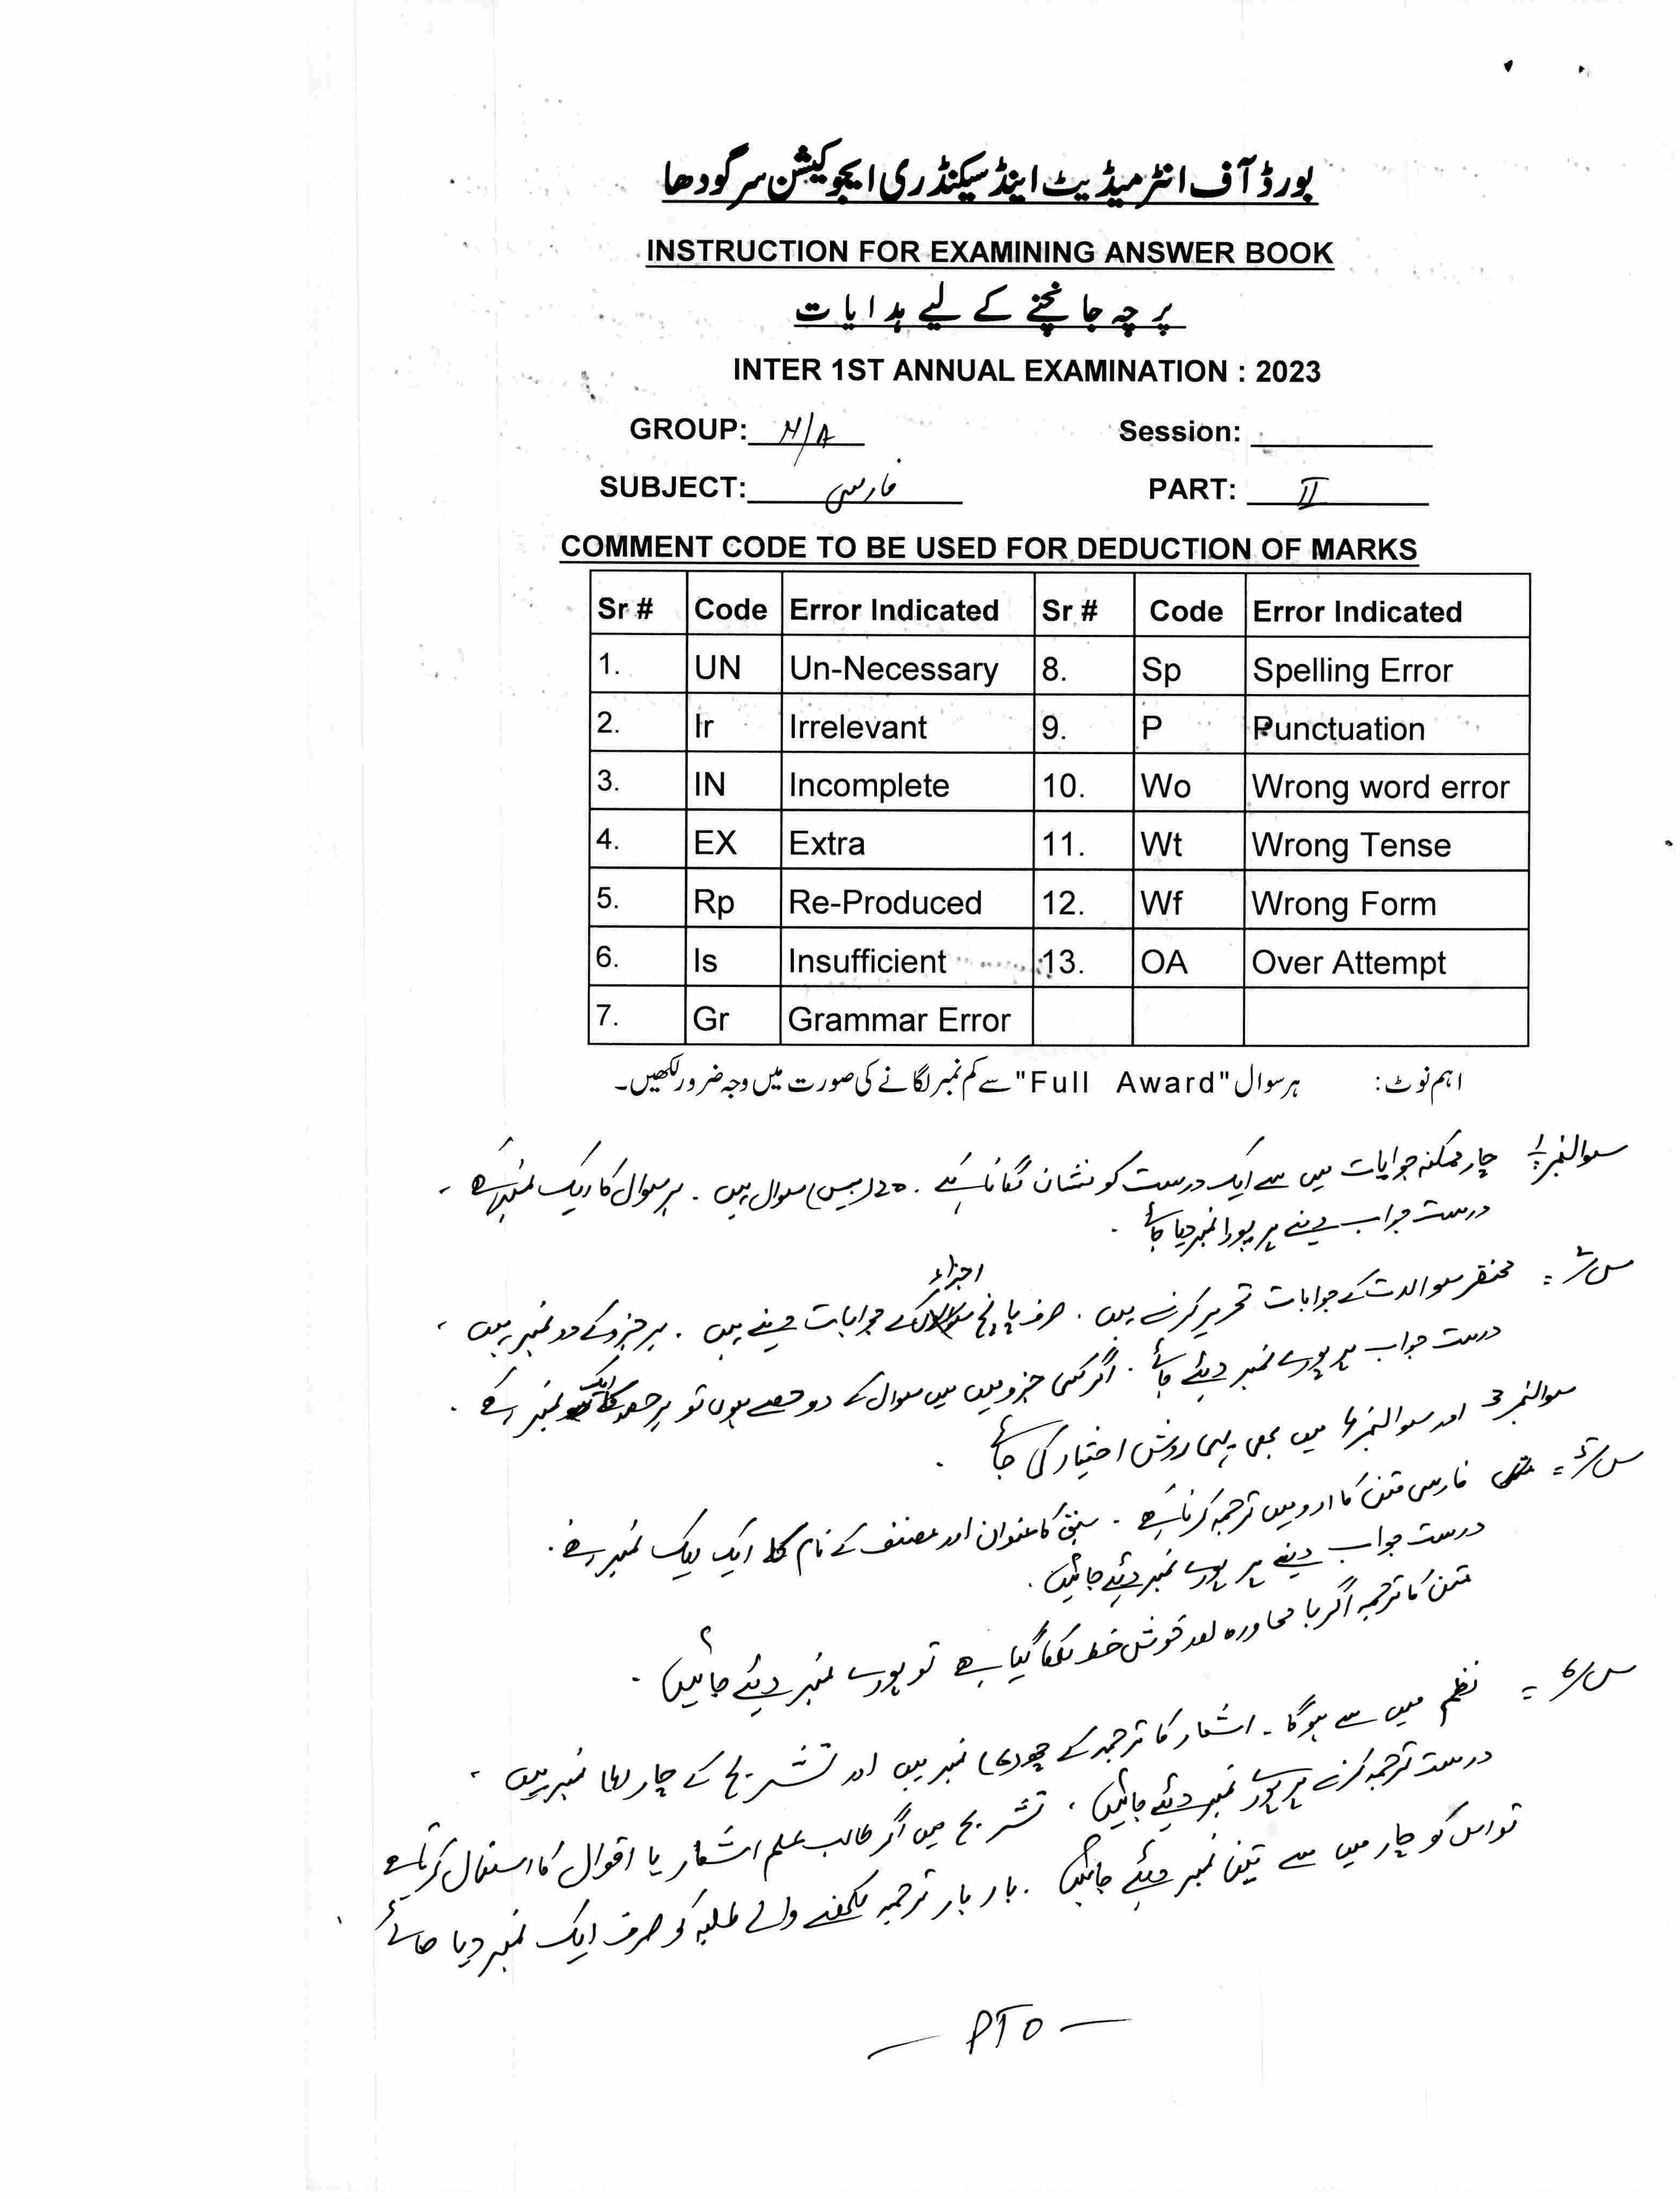 بورڈ آف انٹرمیڈیٹ اینڈ سیکنڈری ایجوکیشن سرگودھا
INSTRUCTION FOR EXAMINING ANSWER BOOK
پرچہ جانچنے کے لیے ہدایات
INTER 1ST ANNUAL EXAMINATION : 2023
GROUP: N/A Session:
SUBJECT: فارسی PART: II
COMMENT CODE TO BE USED FOR DEDUCTION OF MARKS
Sr # Code Error Indicated Sr # Code Error Indicated
1. UN Un-Necessary 8. Sp Spelling Error
2. Ir Irrelevant 9. P Punctuation
3. IN Incomplete 10. Wo Wrong word error
4. EX Extra 11. Wt Wrong Tense
5. Rp Re-Produced 12. Wf Wrong Form
6. Is Insufficient 13. OA Over Attempt
7. Gr Grammar Error
اہم نوٹ: ہر سوال "Full Award" سے کم نمبر لگانے کی صورت میں وجہ ضرور لکھیں۔
سوالنمبر 1 چار ممکنہ جوابات میں سے ایک درست کو نشان لگانا ہے ۔ 20 (بیس) سوال ہیں ۔ ہر سوال کا ایک نمبر ہے ۔
درست جواب دینے پر پورا نمبر دیا جائے ۔
س 2 = مختصر سوالات کے جوابات تحریر کرنے ہیں ۔ صرف پانچ اجزاء کے جوابات دینے ہیں ۔ ہر جزو کے دو نمبر ہیں ۔
درست جواب پر پورے نمبر دیئے جائے ۔ اگر کسی جزو میں میں سوال کے دو حصے ہوں تو ہر حصہ کا ایک نمبر ہے ۔
سوالنمبر 3 اور سوالنمبر 4 میں بھی یہی روش اختیار کی جائے ۔
س 5 = فارسی متن کا اردو میں ترجمہ کرنا ہے ۔ سبق کا عنوان اور مصنف کے نام کا ایک ایک نمبر ہے ۔
درست جواب دینے پر پورے نمبر دیئے جائیں ۔
متن کا ترجمہ اگر با محاورہ اور خوش خط لکھا گیا ہے تو پورے نمبر دیئے جائیں ۔
س 6 = نظم میں سے ہوگا ۔ اشعار کا ترجمہ کے چھ (6) نمبر ہیں اور تشریح کے چار نمبر ہیں ۔
درست ترجمہ کرنے پر پورے نمبر دیئے جائیں ۔ تشریح میں اگر طالب علم اشعار یا اقوال کا استعمال کرتا ہے
تو اس کو چار میں سے تین نمبر دیئے جائیں ۔ بار بار ترجمہ لکھنے والے طلبہ کو صرف ایک نمبر دیا جائے ۔
— PTO —